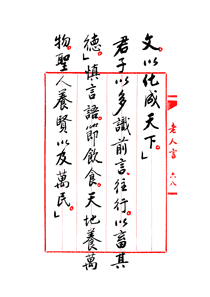 文以化成天下。」
君子以多識前言、往行以畜其
德」慎言語。節飲食。天地養萬
物。聖人養賢以及萬民。」
老人言 六八